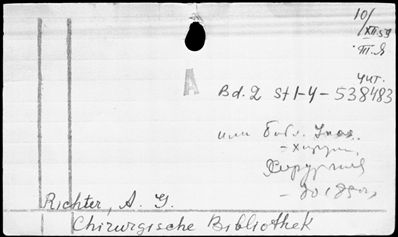 10/
XII 59
Т.Я
Чит.
A
Bd.2 St 1-4 - 538483
или библ.
- хирург.
Хирургия
Richter, A. G.
Chirurgische Bibliothek